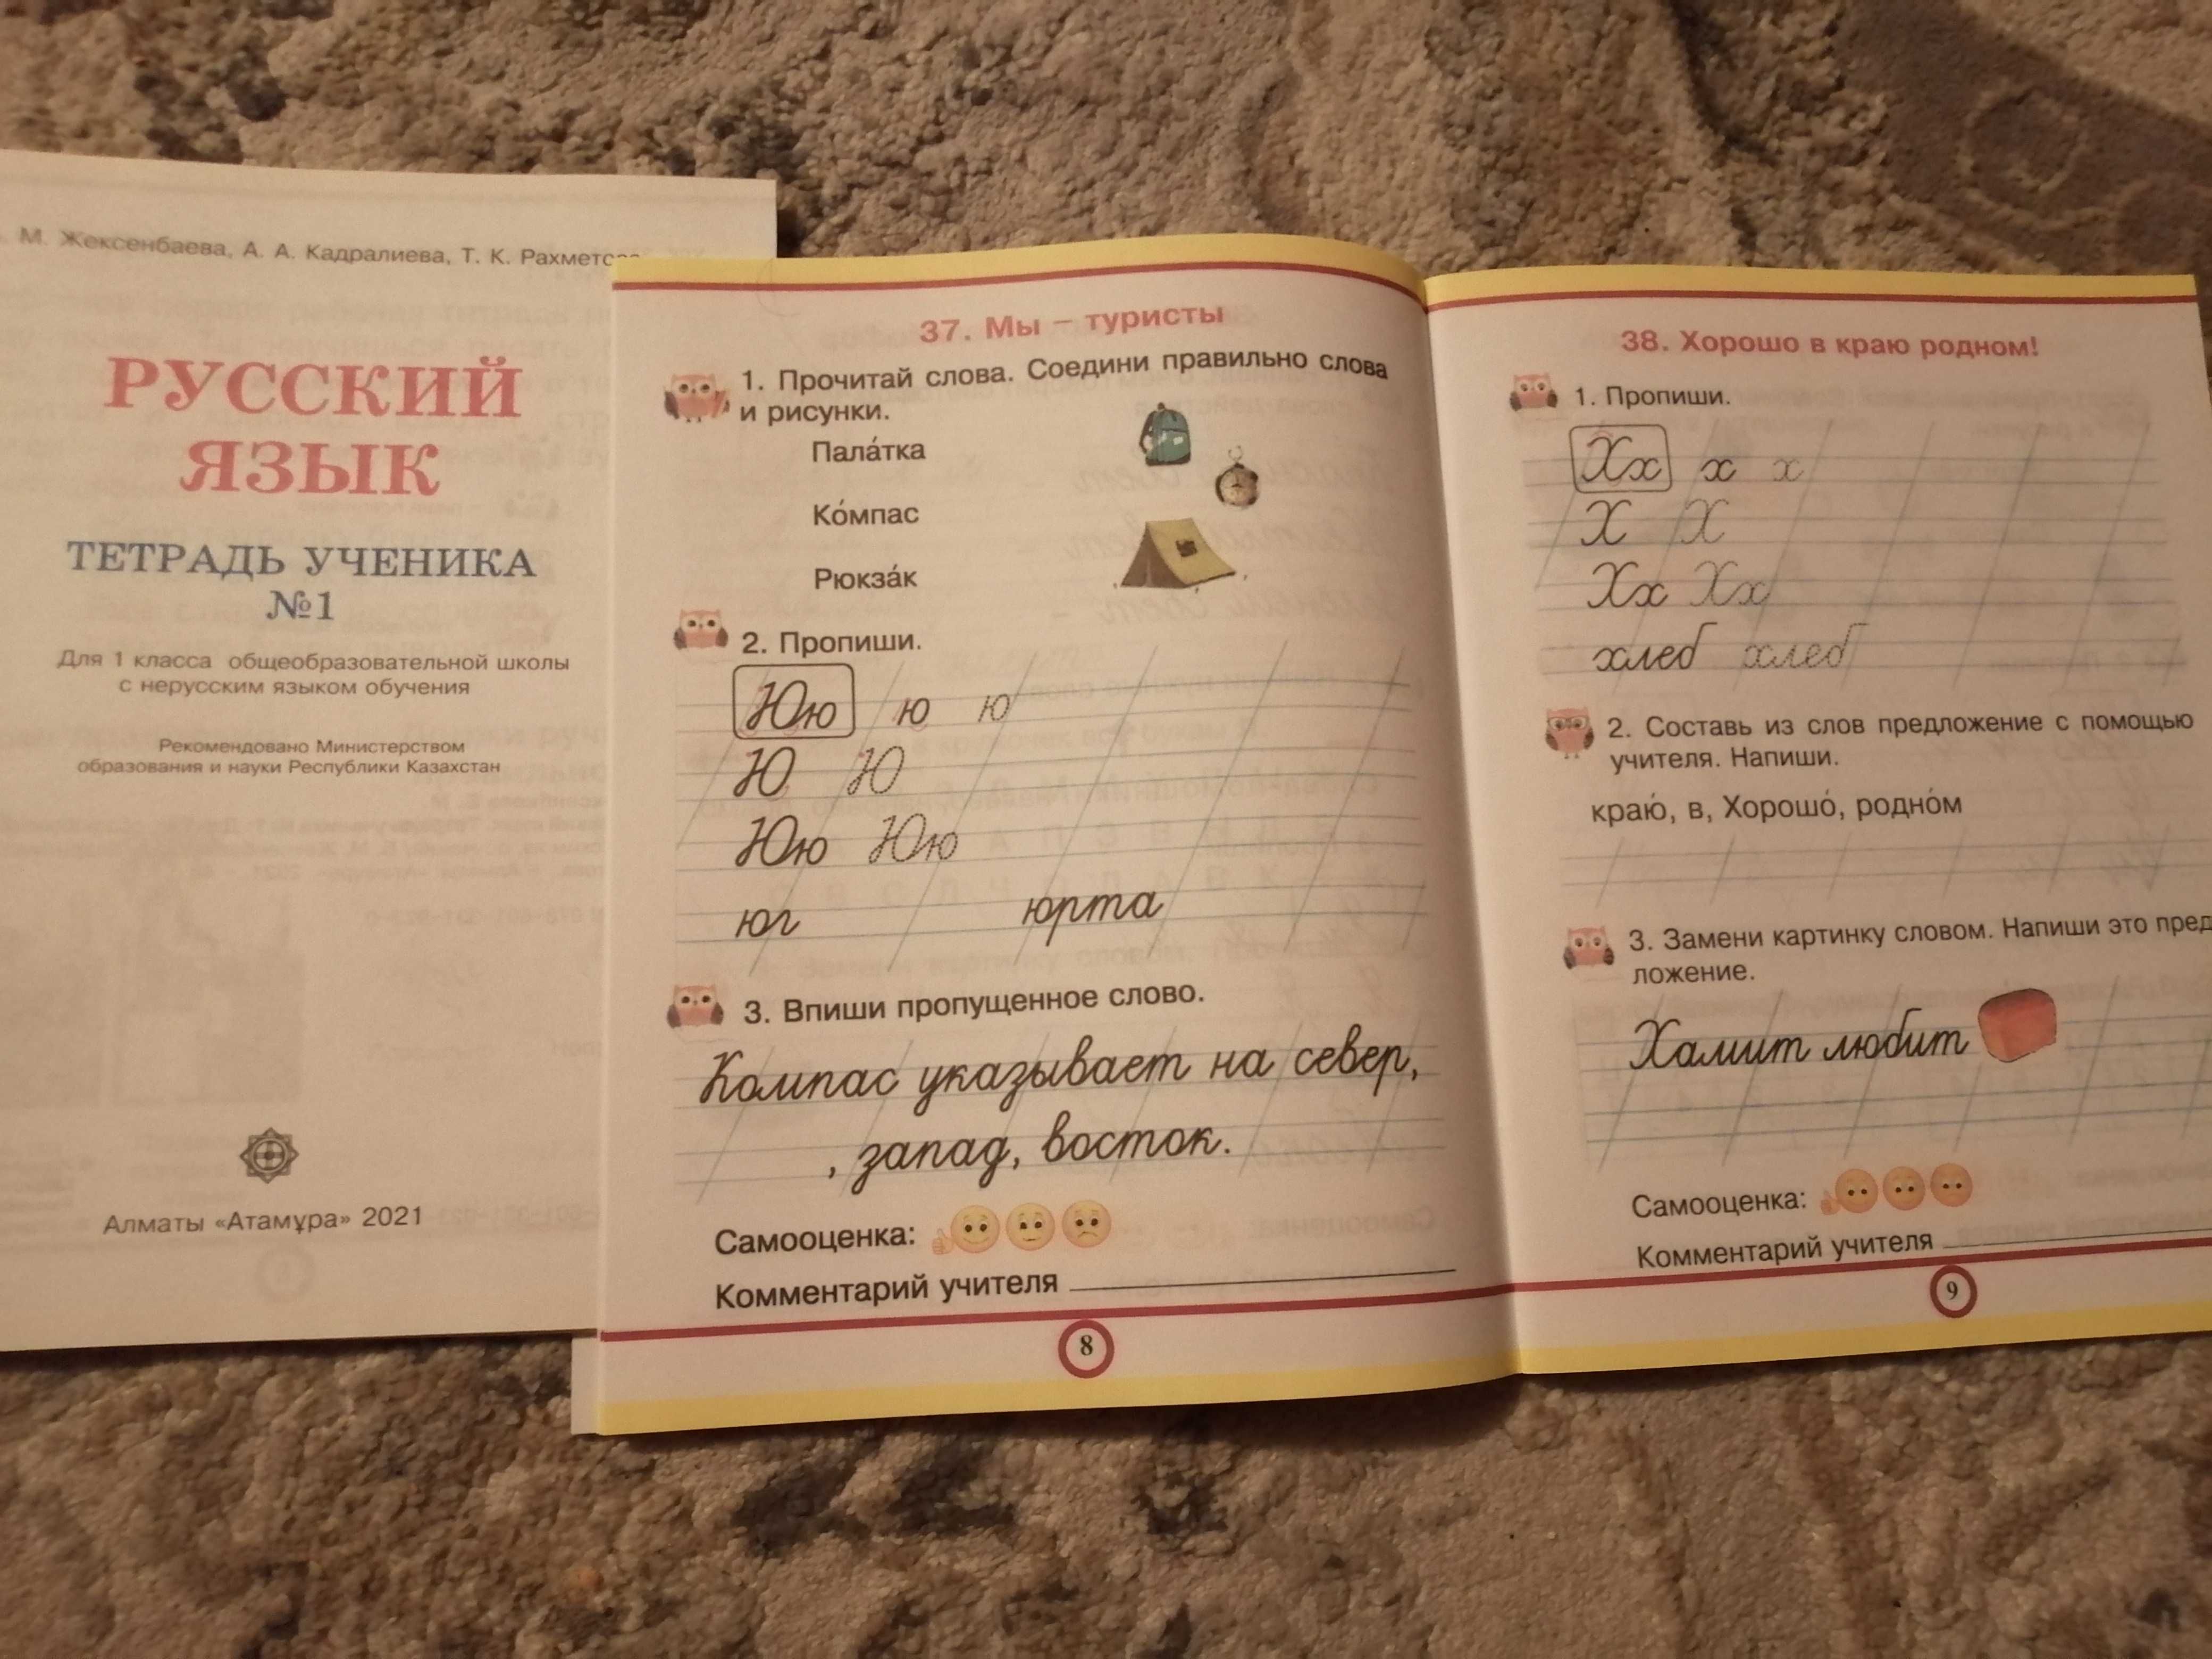 М. Жексенбаева, А. А. Кадралиева, Т. К.
РУССКИЙ
ЯЗЫК
ТЕТРАДЬ УЧЕНИКА
№1
Для 1 класса общеобразовательной школы
с нерусским языком обучения
Рекомендовано Министерством
образования и науки Республики Казахстан
Алматы «Атамұра» 2021
37. Мы – туристы
1. Прочитай слова. Соедини правильно слова
и рисунки.
Пала́тка
Ко́мпас
Рюкза́к
2. Пропиши.
Юю ю ю
Ю Ю
Юю Юю
юг юрта
3. Впиши пропущенное слово.
Компас указывает на север,
, запад, восток.
Самооценка:
Комментарий учителя
8
38. Хорошо в краю родном!
1. Пропиши.
Хх х х
Х Х
Хх Хх
хлеб хлеб
2. Составь из слов предложение с помощью
учителя. Напиши.
краю́, в, Хорошо́, родно́м
3. Замени картинку словом. Напиши это пред
ложение.
Хамит любит
Самооценка:
Комментарий учителя
9